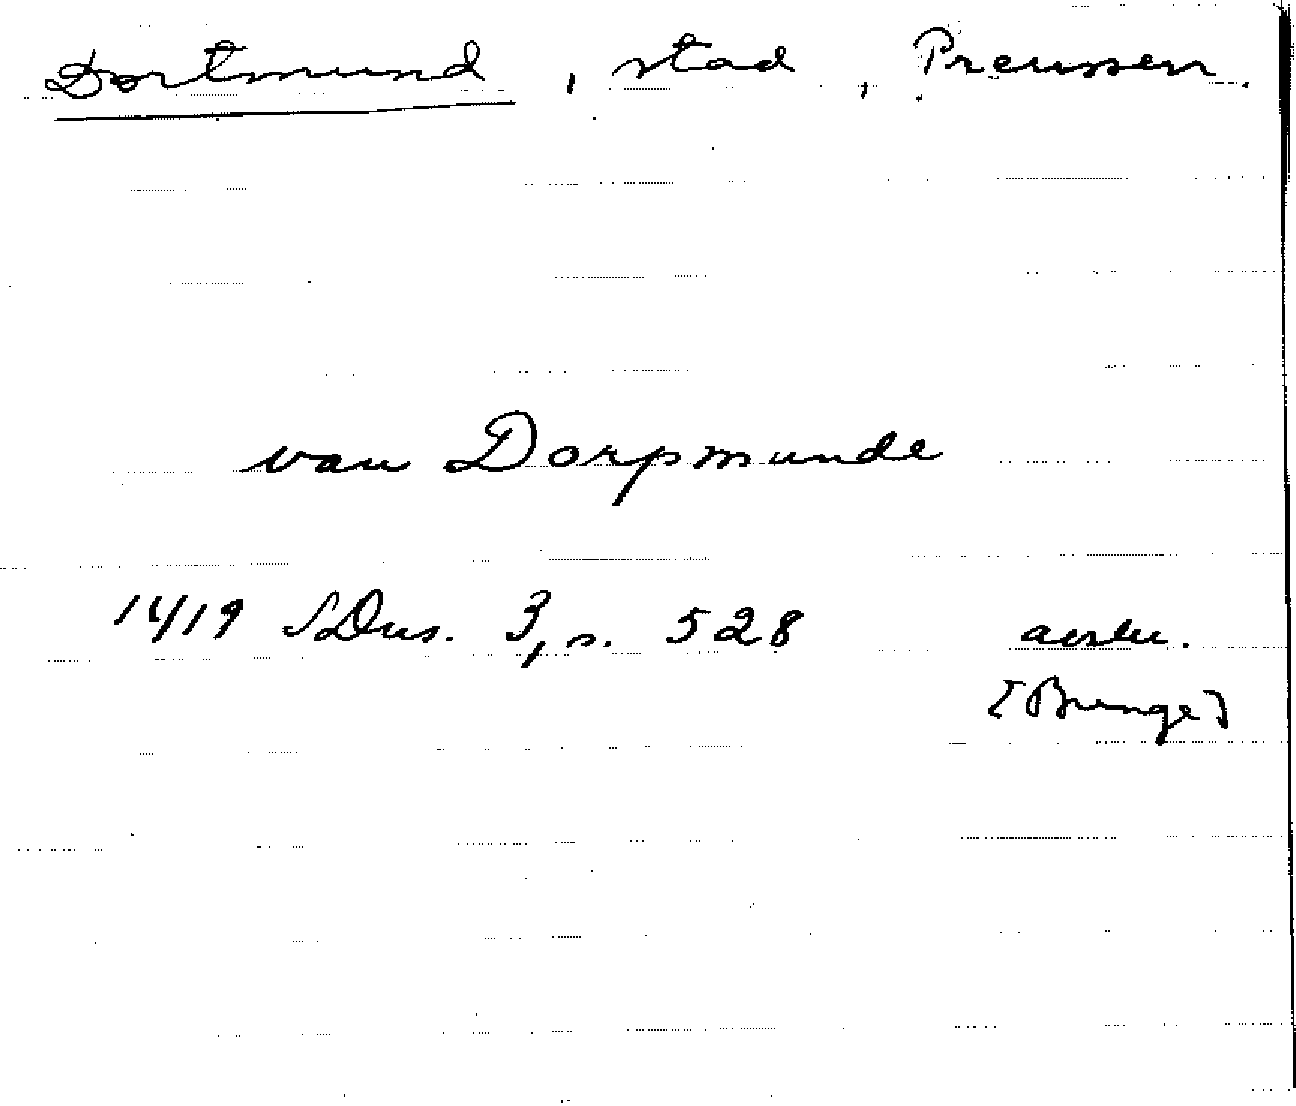 Dortmund, stad, Preussen.
van Dorpmunde
1419 SDns. 3, s. 528 avskr.
[Brunge]